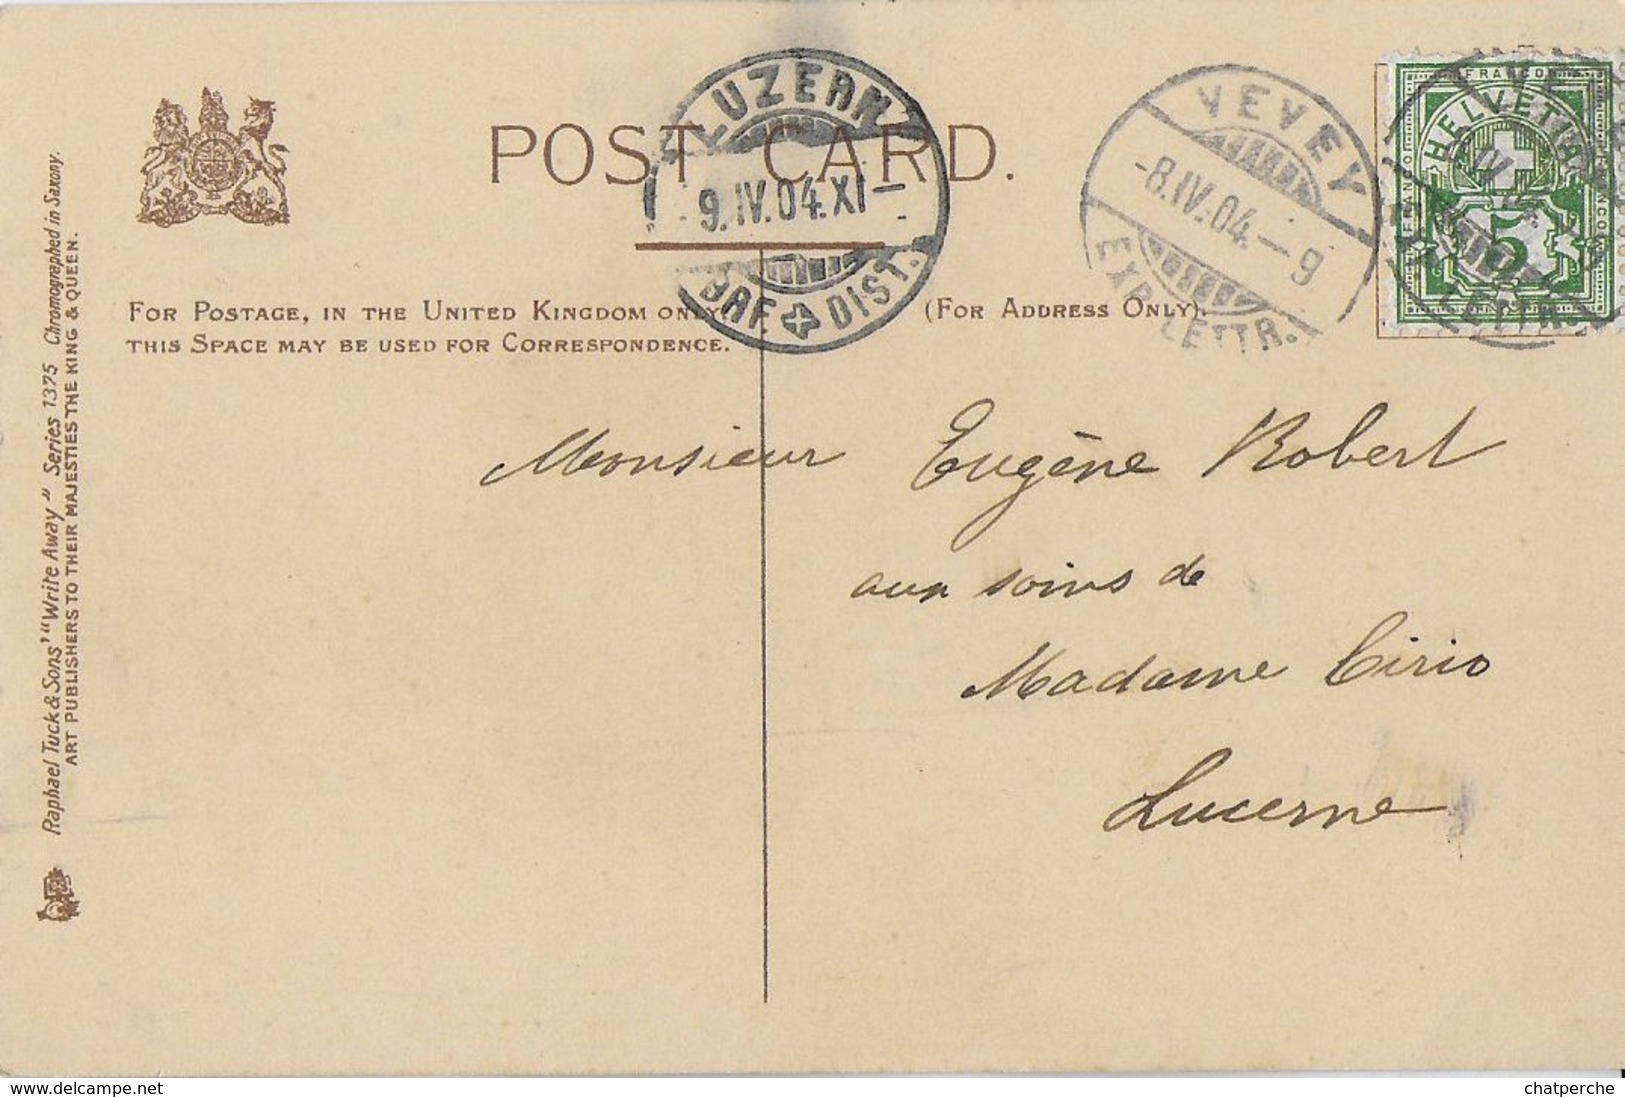 POST CARD.
LUZERN
9.IV.04.XI–
BRF. DIST.
VEVEY
-8.IV.04.–9
EXP. LETTR.
FRANCO
HELVETIA
FRANCO
FRANCO
5
LETTR.
FOR POSTAGE, IN THE UNITED KINGDOM ONLY,
THIS SPACE MAY BE USED FOR CORRESPONDENCE.
(FOR ADDRESS ONLY).
Monsieur Eugène Robert
aux soins de
Madame Cirio
Lucerne
Raphael Tuck & Sons' "Write Away" Series 1375 Chromographed in Saxony.
ART PUBLISHERS TO THEIR MAJESTIES THE KING & QUEEN.
www.delcampe.net
chatperche